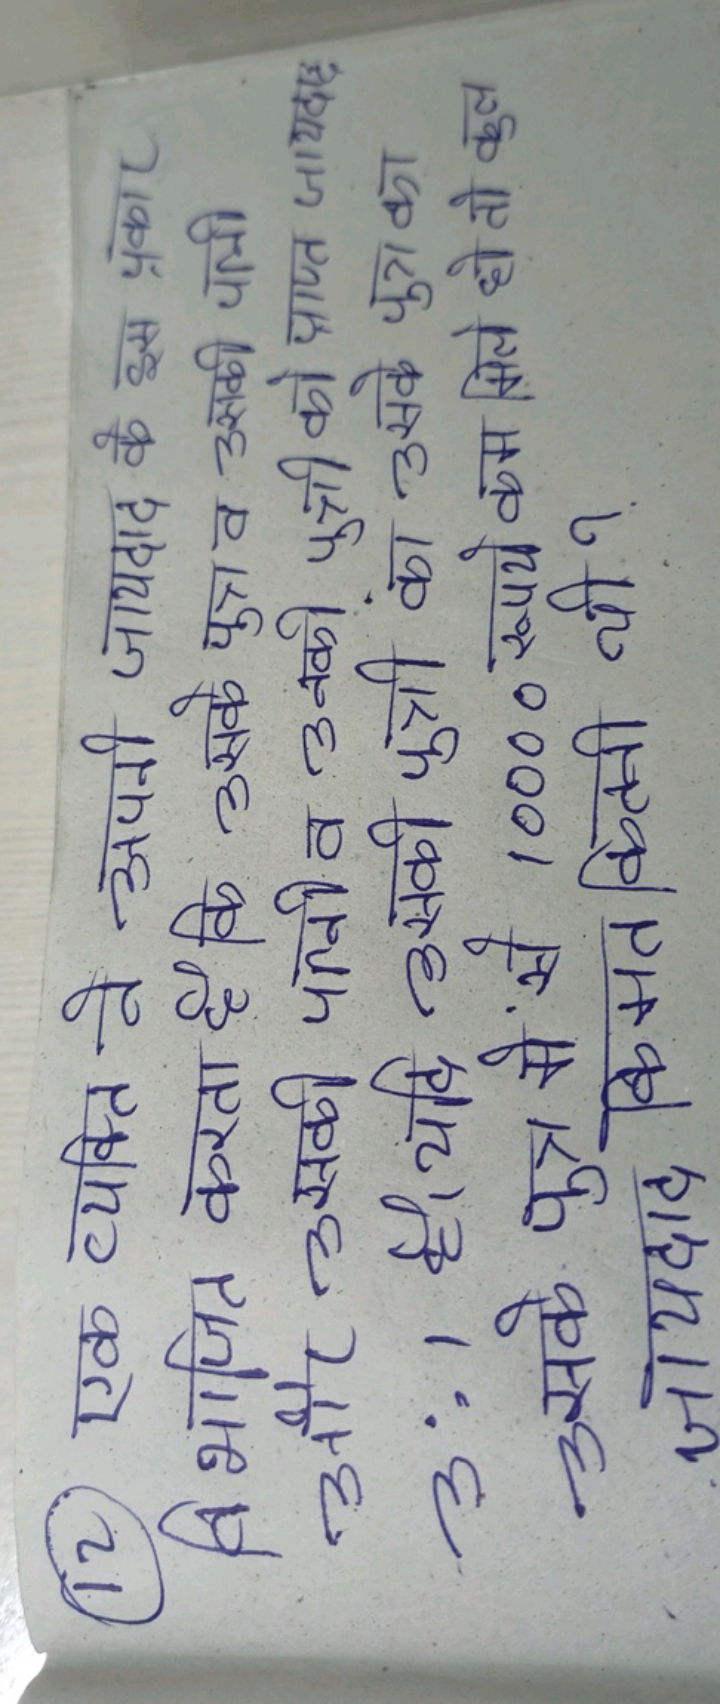 12 एक व्यक्ति ने अपनी जायदाद के इस प्रकार
विभाजित करता है कि उसके पुत्र व उसकी पत्नी
और उसकी पत्नी व उनकी पुत्री को प्राप्त जायदाद
3:1 है। यदि उसकी पुत्री का उसके पुत्र का
उसके पुत्र मे से 10000 रूपये कम मिले हो तो कुल
जायदाद किमत कितनी थी?